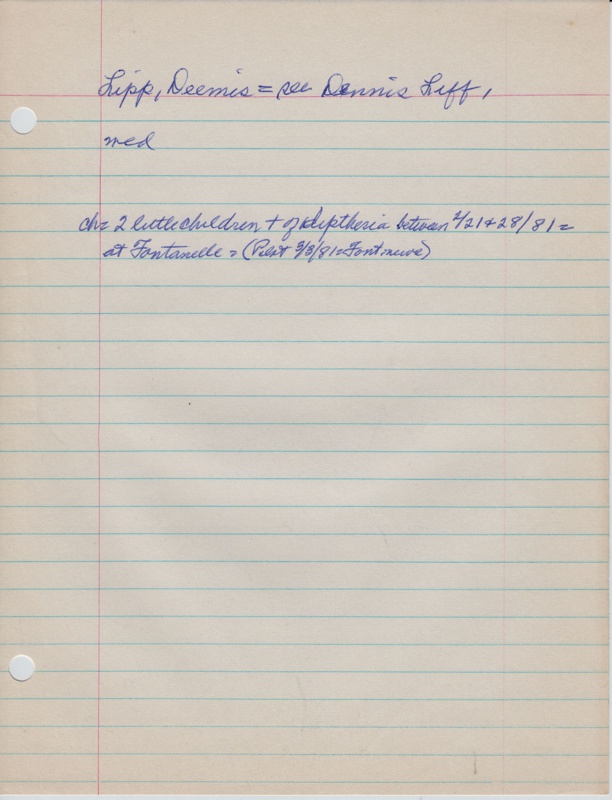 Lipp, Deemis = see Dennis Liff,
med
ch = 2 little children + of diptheria between 2/21 + 28/81 =
at Fontanelle = (Pilot 3/3/81 = Font news)